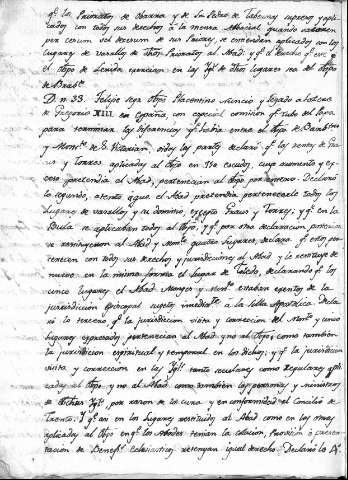 qe. los Prioratos de Obarra y de Sn. Pedro de Tabernas supreso y apli-
cados con todos sus derechos à la mensa Abacial quando vacasen
per cesum vel decesum de sus Priores, se entendían aplicados con los
lugares de vasallos de dhos. Prioratos al Abad: y qe. el derecho qe. en
el Obpo. de Lerida exercian en las Yg.s de dhos lugares sea del Obpo
de Brastº.
D. n. 33. Felipe Sega Obpo Placentino Nuncio y Legado a Latere
de Gregorio XIII. en España, con especial comision qe. tubo del Papa
para terminar las diferencias qe. habia entre el Obpo de Barbstro
y Monrº. de S. Vitorian, oidas las partes declaró qe. las rentas de Graus
y Torres aplicadas al Obpo en 350 escudos, cuyo aumento y ex-
ceso pretendia el Abad, pertenecian al Obpo por entero. Declaró
lo segundo, atento a que el Abad pretendia pertenecerle todos los
Lugares de vasallos y su dominio, excepto Graus y Torres, y qe. en la
Bula se aplicaban todos al Obpo, y qe. por otra declaracion posterior
se restringieron al Abad y Monrº. quatro lugares, declara qe. estos per-
tenecen con todos sus derechos y jurisdicciones al Abad y le restituye de
nuevo en la misma forma el Lugar de Toledo, declarando qe. los
cinco lugares el Abad Monges y Monrº. estaban exentos de la
jurisdiccion Episcopal sujetos inmediatte. à la Silla Apostolica. Decla-
ró lo tercero, qe. la jurisdiccion visita y correccion del Monrº. y cinco
lugares expresados pertenecian al Abad y no al Obpo; como tambien
la jurisdiccion espiritual y temporal en los dichos; y qe. la jurisdiccion
visita y correccion en las Yg.s tanto seculares como Regulares apli-
cadas al Obpo y no al Abad como tambien las personas y ministros
de dichas Yg.s, por razon de la cura y en conformidad al Concilio de
Trento. Y qe. asi en los Lugares restituidos al Abad como en los otros
aplicados al Obpo en qe. los Abades tenian la colacion, provision ò presen-
tacion de Benefs. Eclesiasticos retengan igual derecho. Declaró lo 4º.